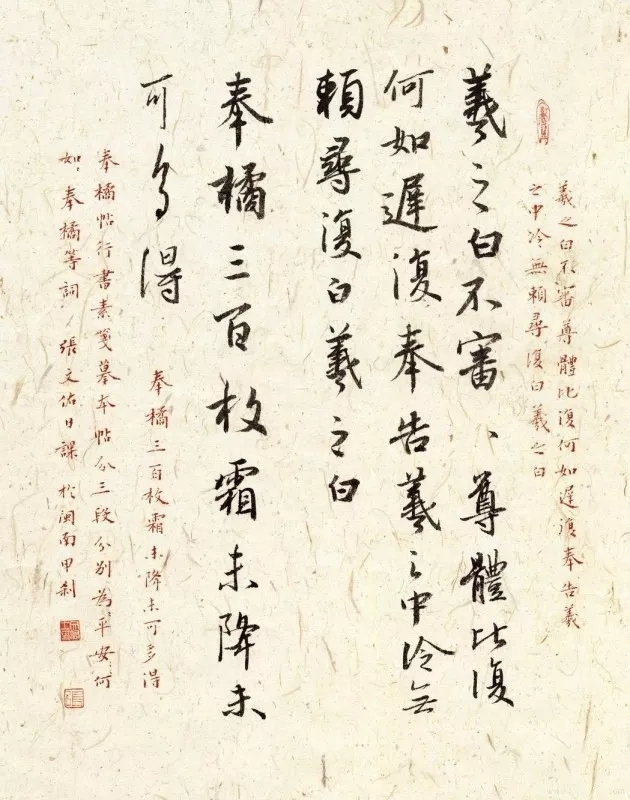 羲之白不審尊體比復何如遲復奉告羲
之中冷無賴尋復白羲之白
羲之白不審、尊體比復
何如遲復奉告羲之中冷無
賴尋復白羲之白
奉橘三百枚霜未降未
可多得
奉橘三百枚霜未降未可多得
奉橘帖行書素箋摹本帖分三段分別為平安何
如,奉橘等詞 張文佑日課於閩南甲刹